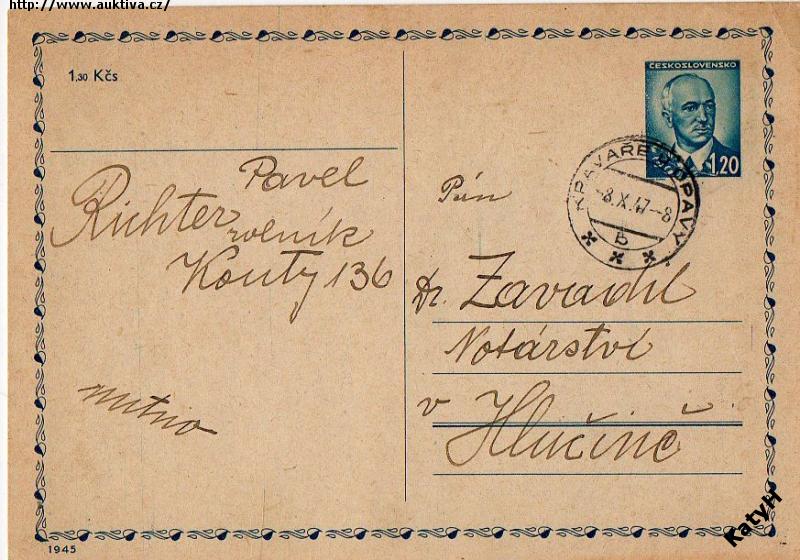 http://www.auktiva.cz/
1,30 Kčs
ČESKOSLOVENSKO
1,20
KRAVAŘE U OPAVY
-8.X.47-8
b
Pavel
Richter
rolník
Kouty 136
nutno
Pán
Dr. Zavadil
Notářství
v Hlučíně
1945
KatyH